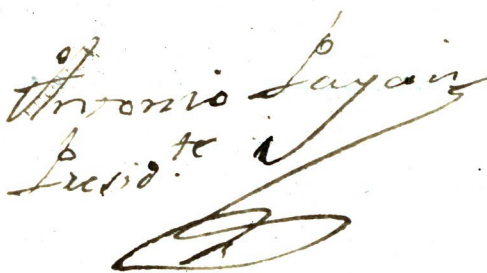 Antonio Payan
Presid.te